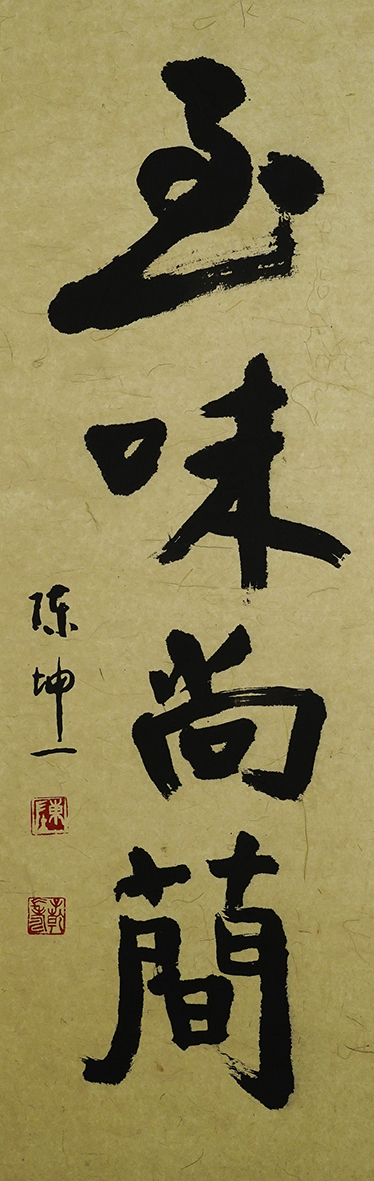 至味尚簡
陈坤一